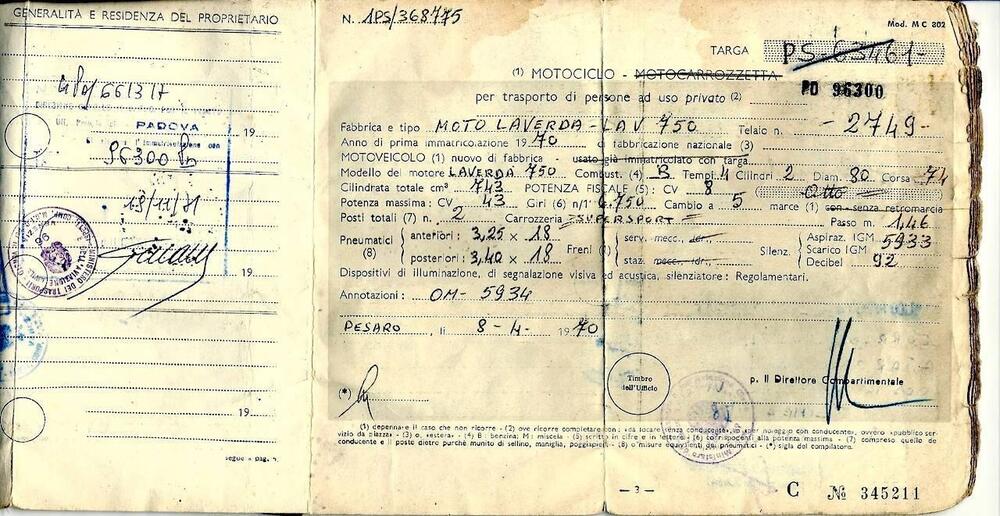 GENERALITÀ E RESIDENZA DEL PROPRIETARIO
PADOVA
19
l'immatricolazione con
96300
19
19
segue a pag.
N. 1PS/368775
Mod. MC 802
TARGA PS 63461
(1) MOTOCICLO - MOTOCARROZZETTA
PD 96300
per trasporto di persone ad uso privato (2)
Fabbrica e tipo MOTO LAVERDA - LAV 750 Telaio n. - 2749 -
Anno di prima immatricolazione 1970 di fabbricazione nazionale (3)
MOTOVEICOLO (1) nuovo di fabbrica - usato già immatricolato con targa
Modello del motore LAVERDA 750 Combust. (4) B Tempi 4 Cilindri 2 Diam. 80 Corsa 74
Cilindrata totale cm³ 743 POTENZA FISCALE (5): CV 8 Otto
Potenza massima: CV 43 Giri (6) n/1' 6.750 Cambio a 5 marce (1) con - senza retromarcia
Posti totali (7) n. 2 Carrozzeria SUPERSPORT Passo m. 1,46
Pneumatici (8) anteriori: 3,25 x 18 Freni serv. mecc., idr., Silenz. Aspiraz. IGM 5933
Scarico IGM
posteriori: 3,40 x 18 staz. mecc., idr., Decibel 92
Dispositivi di illuminazione, di segnalazione visiva ed acustica, silenziatore: Regolamentari.
Annotazioni: OM- 5934
PESARO, li 8-4- 1970
Timbro dell'Ufficio
p. Il Direttore Compartimentale
(*)
(1) depennare il caso che non ricorre - (2) ove ricorre completare con: «da locare senza conducente», «per noleggio con conducente», ovvero «pubblico servizio da piazza» - (3) o, «estera» - (4) B: benzina; M: miscela - (5) scritto in cifre e in lettere - (6) corrispondenti alla potenza massima - (7) compreso quello del conducente e il posto dietro purché munito di sellino, maniglia, poggiapiedi - (8) o misure equivalenti dei pneumatici - (*) sigla del compilatore.
— 3 —
C № 345211